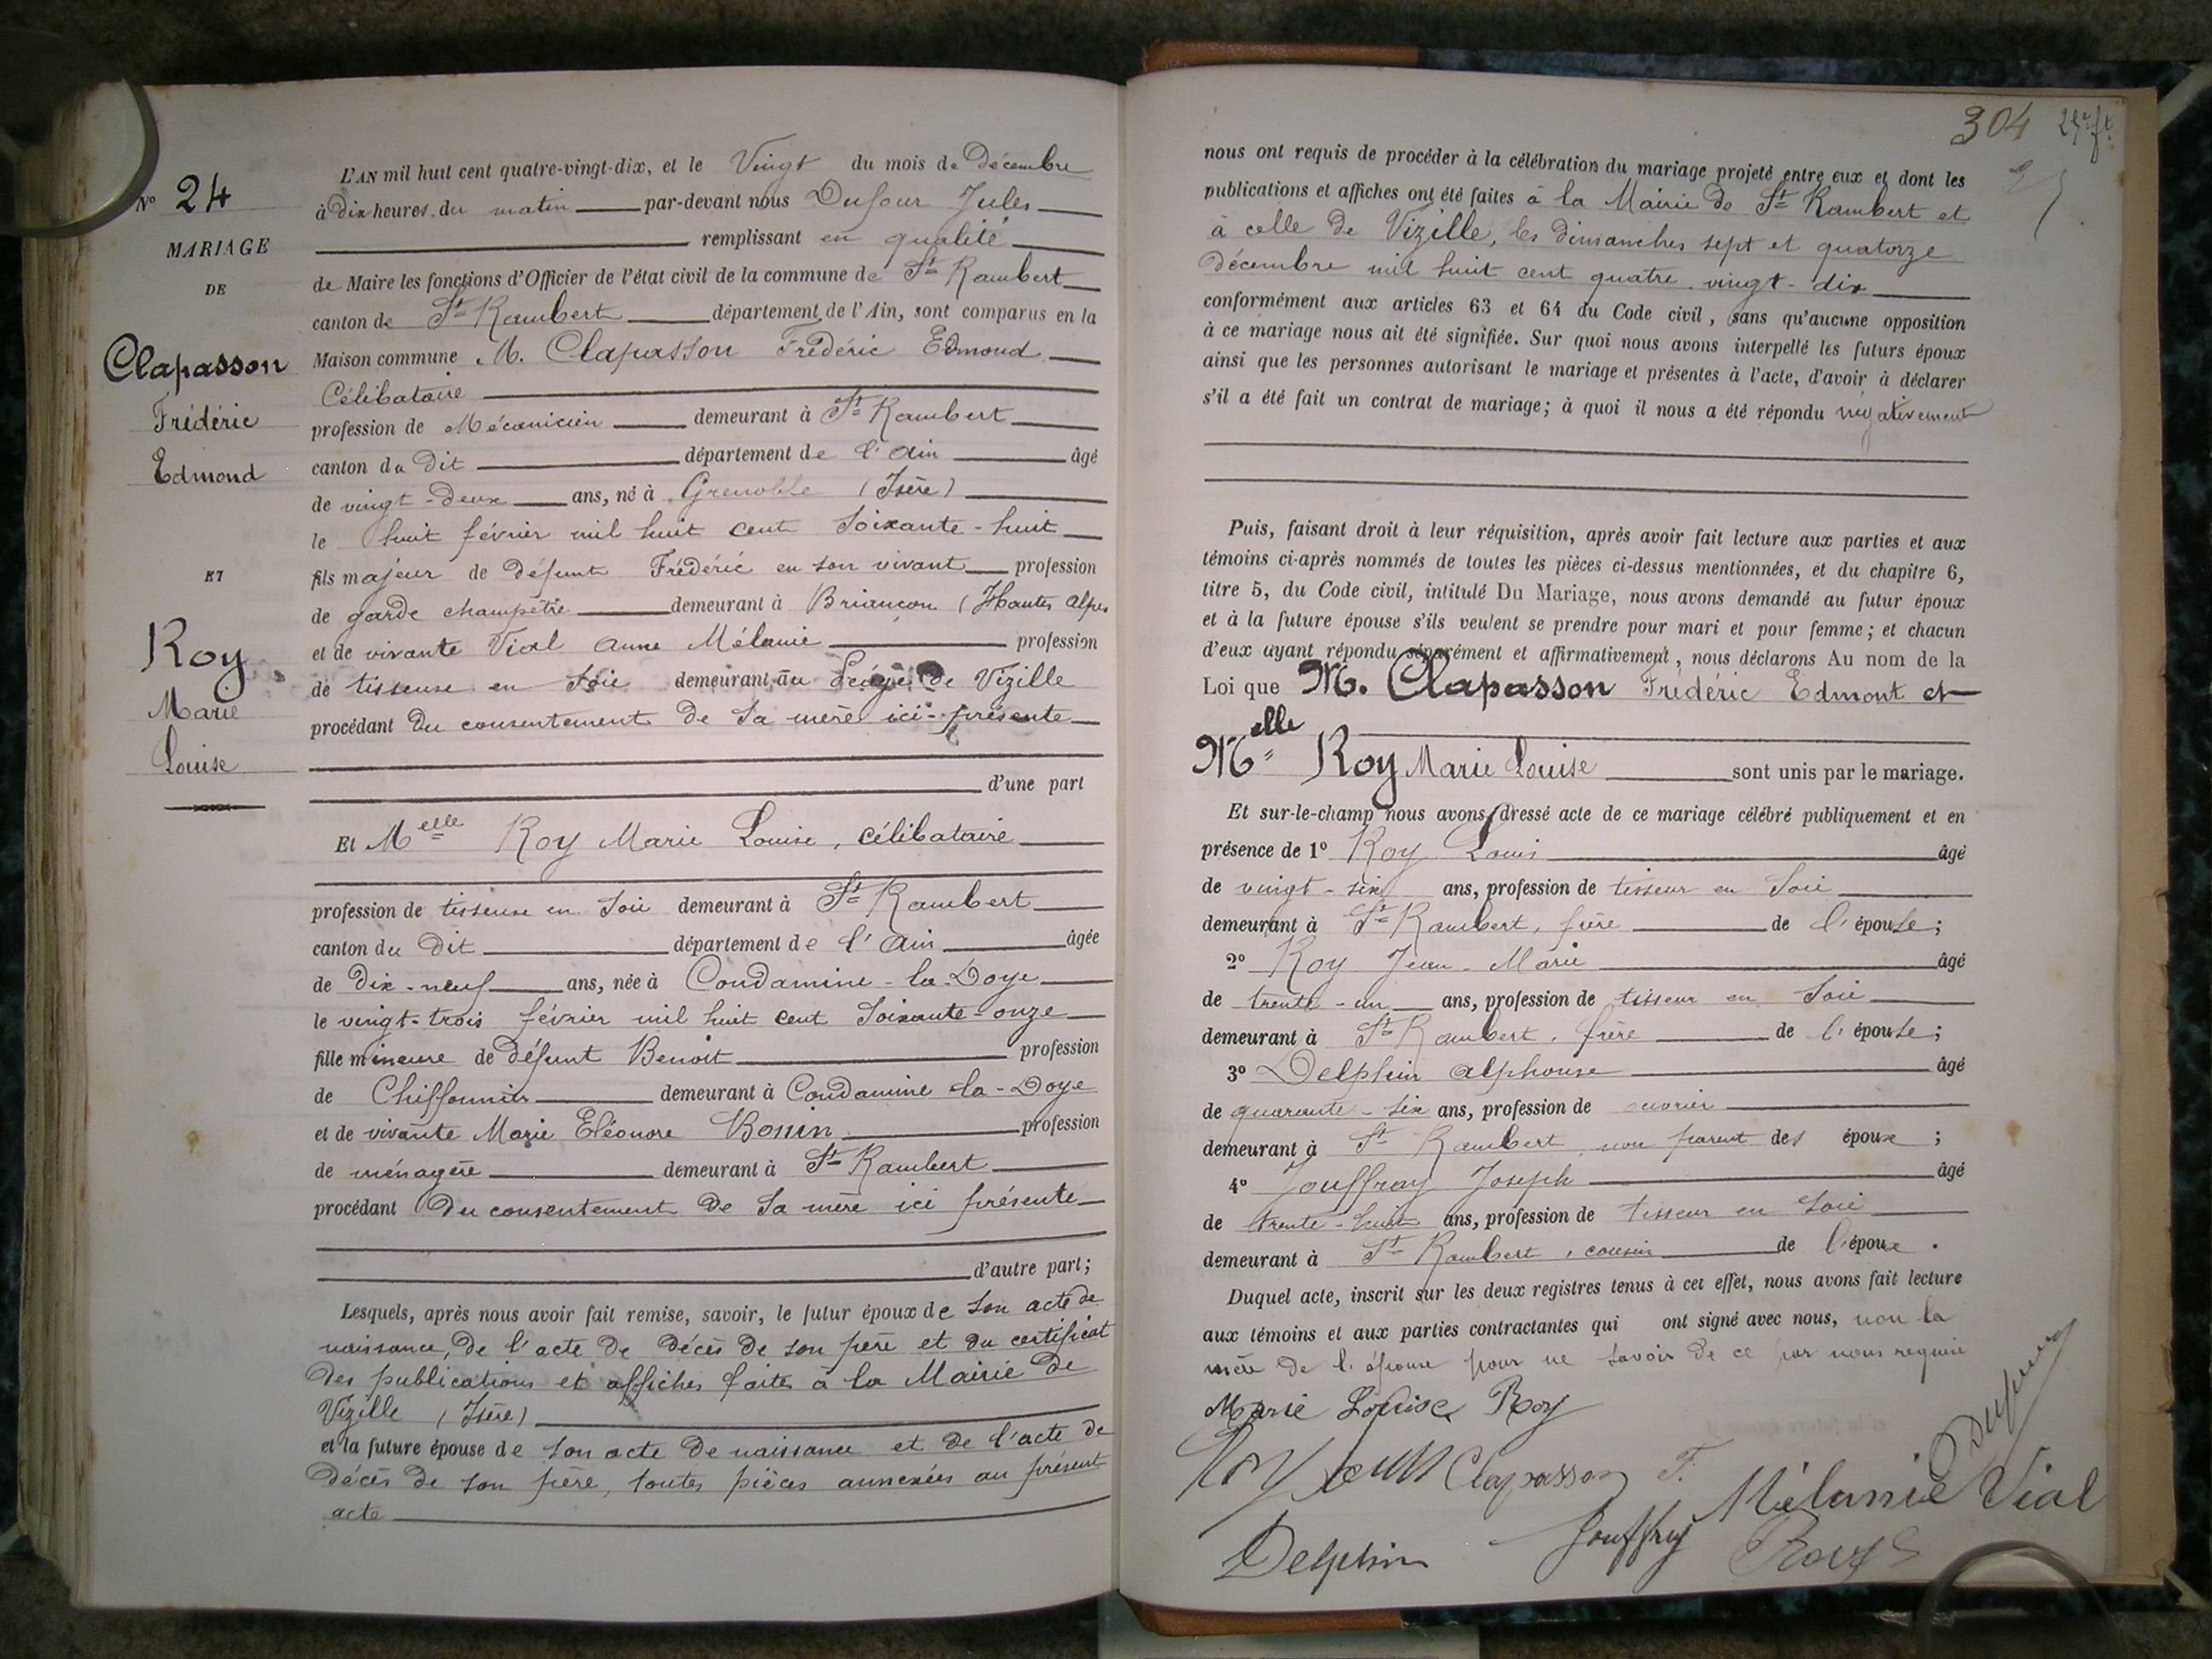 N° 24
MARIAGE
DE
Clapasson
Frédéric
Edmond
ET
Roy
Marie
Louise
L'AN mil huit cent quatre-vingt-dix, et le Vingt du mois de Décembre
à dix heures du matin par-devant nous Dufour Jules
remplissant en qualité
de Maire les fonctions d'Officier de l'état civil de la commune de St Rambert
canton de St Rambert département de l'Ain, sont comparus en la
Maison commune M. Clapasson Frédéric Edmond
Célibataire
profession de Mécanicien demeurant à St Rambert
canton du dit département de l'Ain âgé
de vingt-deux ans, né à Grenoble (Isère)
le huit février mil huit cent soixante-huit
fils majeur de défunt Frédéric en son vivant profession
de garde champêtre demeurant à Briançon (Hautes Alpes
et de vivante Vial Anne Mélanie profession
de tisseuse en soie demeurant au Péage de Vizille
procédant du consentement de sa mère ici-présente
d'une part
Et Melle Roy Marie Louise, célibataire
profession de tisseuse en soie demeurant à St Rambert
canton du dit département de l'Ain âgée
de dix-neuf ans, née à Condamine-la-Doye
le vingt-trois février mil huit cent soixante-onze
fille mineure de défunt Benoit profession
de Chiffonnier demeurant à Condamine-la-Doye
et de vivante Marie Eléonore Bonin profession
de ménagère demeurant à St Rambert
procédant du consentement de sa mère ici présente
d'autre part;
Lesquels, après nous avoir fait remise, savoir, le futur époux de son acte de
naissance, de l'acte de décès de son père et du certificat
des publications et affiches faites à la Mairie de
Vizille (Isère)
et la future épouse de son acte de naissance et de l'acte de
décès de son père, toutes pièces annexées au présent
acte
304
nous ont requis de procéder à la célébration du mariage projeté entre eux et dont les
publications et affiches ont été faites à la Mairie de St Rambert et
à celle de Vizille, les dimanches sept et quatorze
décembre mil huit cent quatre-vingt-dix
conformément aux articles 63 et 64 du Code civil, sans qu'aucune opposition
à ce mariage nous ait été signifiée. Sur quoi nous avons interpellé les futurs époux
ainsi que les personnes autorisant le mariage et présentes à l'acte, d'avoir à déclarer
s'il a été fait un contrat de mariage; à quoi il nous a été répondu négativement
Puis, faisant droit à leur réquisition, après avoir fait lecture aux parties et aux
témoins ci-après nommés de toutes les pièces ci-dessus mentionnées, et du chapitre 6,
titre 5, du Code civil, intitulé Du Mariage, nous avons demandé au futur époux
et à la future épouse s'ils veulent se prendre pour mari et pour femme; et chacun
d'eux ayant répondu séparément et affirmativement, nous déclarons Au nom de la
Loi que M. Clapasson Frédéric Edmont et
Melle Roy Marie Louise sont unis par le mariage.
Et sur-le-champ nous avons dressé acte de ce mariage célébré publiquement et en
présence de 1° Roy Louis âgé
de vingt-six ans, profession de tisseur en soie
demeurant à St Rambert, frère de l'épouse;
2° Roy Jean-Marie âgé
de trente-un ans, profession de tisseur en soie
demeurant à St Rambert, frère de l'épouse;
3° Delphin Alphonse âgé
de quarante-six ans, profession de ouvrier
demeurant à St Rambert, non parent des époux;
4° Jouffray Joseph âgé
de trente-huit ans, profession de tisseur en soie
demeurant à St Rambert, cousin de l'époux.
Duquel acte, inscrit sur les deux registres tenus à cet effet, nous avons fait lecture
aux témoins et aux parties contractantes qui ont signé avec nous, non la
mère de l'épouse pour ne savoir de ce par nous requise
Marie Louise Roy
Dufour
Roy Louis Clapasson F. Mélanie Vial
Delphin Jouffray Roy